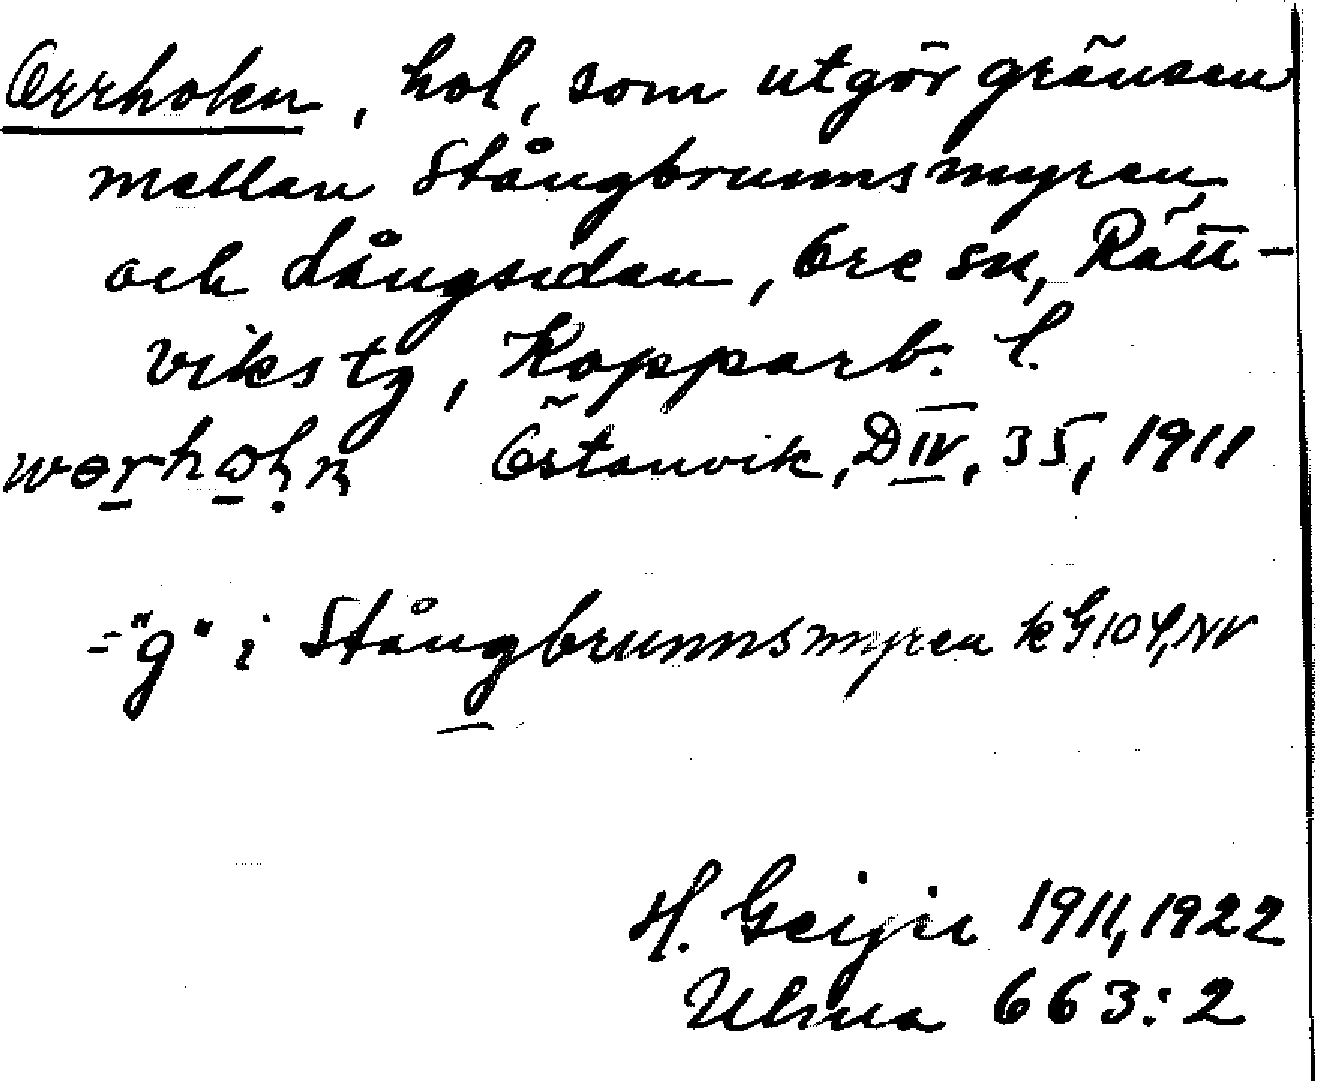 Orrholen, hol, som utgör gränsen
mellan Stångbrunnsmyren
och Långsidan, Ore sn, Rätt-
viks tg, Kopparb. l.
Östanvik, D IV, 35, 1911
="g" i Stångbrunnsmyren
H. Geijer 1911, 1922
Ulma 663:2